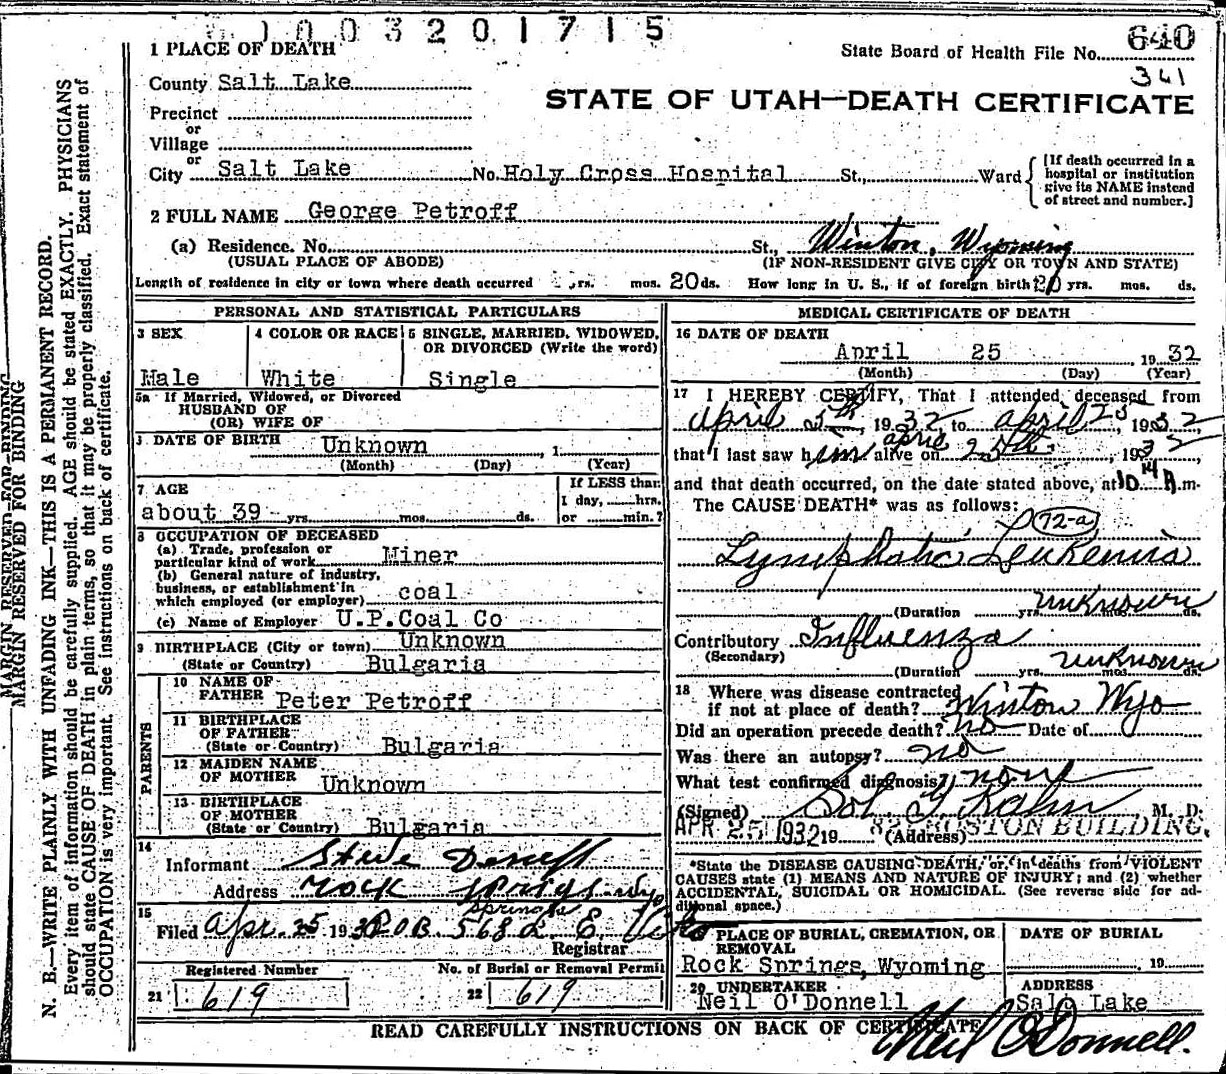 1003201715
640
State Board of Health File No.
341
1 PLACE OF DEATH
County Salt Lake
STATE OF UTAH—DEATH CERTIFICATE
Precinct
or
Village
or
City Salt Lake No. Holy Cross Hospital St., Ward
[If death occurred in a
hospital or institution
give its NAME instead
of street and number.]
2 FULL NAME George Petroff
(a) Residence. No. St., Winton, Wyoming
(USUAL PLACE OF ABODE) (IF NON-RESIDENT GIVE CITY OR TOWN AND STATE)
Length of residence in city or town where death occurred yrs. mos. 20 ds. How long in U. S., if of foreign birth? 20 yrs. mos. ds.
PERSONAL AND STATISTICAL PARTICULARS
3 SEX 4 COLOR OR RACE 5 SINGLE, MARRIED, WIDOWED,
OR DIVORCED (Write the word)
Male White Single
5a If Married, Widowed, or Divorced
HUSBAND OF
(OR) WIFE OF
DATE OF BIRTH Unknown , 1
(Month) (Day) (Year)
7 AGE If LESS than
1 day, hrs.
about 39 yrs. mos. ds. or min.?
8 OCCUPATION OF DECEASED
(a) Trade, profession or
particular kind of work Miner
(b) General nature of industry,
business, or establishment in
which employed (or employer) coal
(c) Name of Employer U.P.Coal Co
9 BIRTHPLACE (City or town) Unknown
(State or Country) Bulgaria
PARENTS
10 NAME OF
FATHER Peter Petroff
11 BIRTHPLACE
OF FATHER
(State or Country) Bulgaria
12 MAIDEN NAME
OF MOTHER
Unknown
13 BIRTHPLACE
OF MOTHER
(State or Country) Bulgaria
14
Informant Steve
Address Rock Springs, Wyo
Springs
15
Filed Apr. 25 193 P.O.B. 568 L. E.
Registrar
Registered Number No. of Burial or Removal Permit
21 619 22 619
MEDICAL CERTIFICATE OF DEATH
16 DATE OF DEATH
April 25 , 1932
(Month) (Day) (Year)
17 I HEREBY CERTIFY, That I attended deceased from
April 5th, 1932, to April 25, 1932
that I last saw him alive on April 25th, 1932,
and that death occurred, on the date stated above, at 10 14 A.m.
The CAUSE DEATH* was as follows:
72-a
Lymphatic Leukemia
(Duration yrs. unknown ds.
Contributory Influenza
(Secondary)
(Duration yrs. unknown mos. ds.
18 Where was disease contracted
if not at place of death? Winton Wyo
Did an operation precede death? no Date of
Was there an autopsy? no
What test confirmed diagnosis? none
(Signed) Sol G. Kahn M. D.
APR 25 1932 19 (Address) BOSTON BUILDING.
*State the DISEASE CAUSING DEATH, or, in deaths from VIOLENT
CAUSES state (1) MEANS AND NATURE OF INJURY; and (2) whether
ACCIDENTAL, SUICIDAL OR HOMICIDAL. (See reverse side for ad-
ditional space.)
PLACE OF BURIAL, CREMATION, OR
REMOVAL
DATE OF BURIAL
Rock Springs, Wyoming , 19
20 UNDERTAKER ADDRESS
Neil O'Donnell Salt Lake
READ CAREFULLY INSTRUCTIONS ON BACK OF CERTIFICATE
Neil O'Donnell.
MARGIN RESERVED FOR BINDING
MARGIN RESERVED FOR BINDING
N. B.—WRITE PLAINLY WITH UNFADING INK—THIS IS A PERMANENT RECORD.
Every item of information should be carefully supplied. AGE should be stated EXACTLY. PHYSICIANS
should state CAUSE OF DEATH in plain terms, so that it may be properly classified. Exact statement of
OCCUPATION is very important. See instructions on back of certificate.